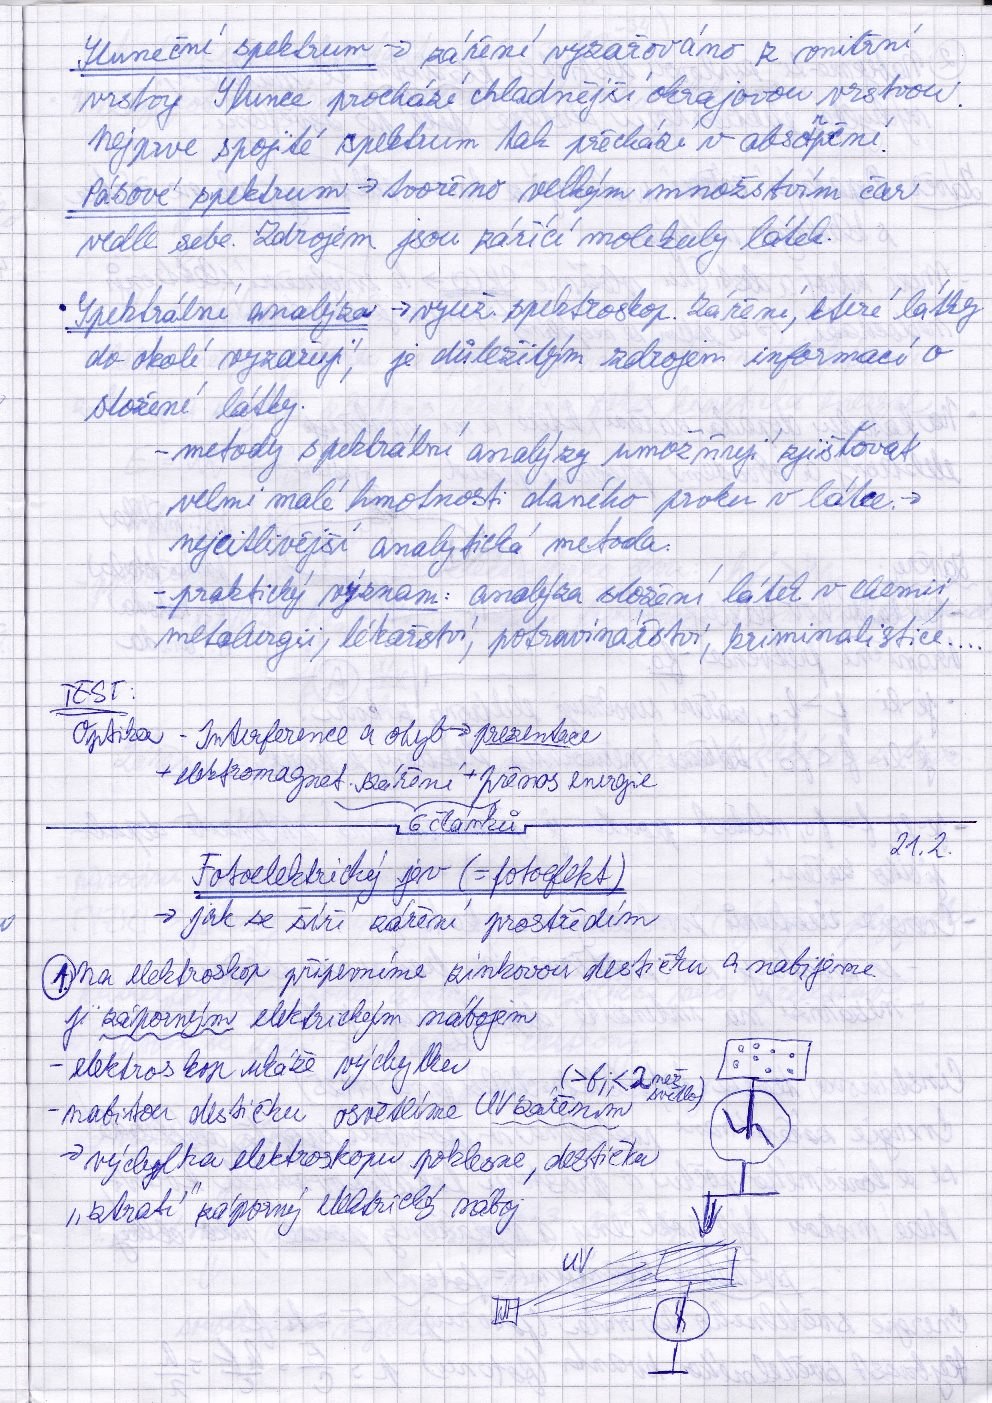 Sluneční spektrum → záření vyzařováno z vnitřní
vrstvy Slunce prochází chladnější okrajovou vrstvou.
Nejprve spojité spektrum tak přechází v absorpční.
Pásové spektrum → tvořeno velkým množstvím čar
vedle sebe. Zdrojem jsou zářící molekuly látek.
• Spektrální analýza → využ. spektroskop. Záření, které látky
do okolí vyzařují, je důležitým zdrojem informací o
složení látky.
- metody spektrální analýzy umožňují zjišťovat
velmi malé hmotnosti daného prvku v látce. →
nejcitlivější analytická metoda.
- praktický význam: analýza složení látek v chemii,
metalurgii, lékařství, potravinářství, kriminalistice....
TEST:
Optika - Interference a ohyb → prezentace
+ elektromagnet. záření + přenos energie
6 článků
21.2.
Fotoelektrický jev (= fotoefekt)
→ jak se šíří záření prostředím
1. Na elektroskop připevníme zinkovou destičku a nabijeme
ji záporným elektrickým nábojem
- elektroskop ukáže výchylku
(> f, < λ než světlo)
- nabitou destičku osvětlíme UV zářením
→ výchylka elektroskopu poklesne, destička
„ztratí" záporný elektrický náboj
UV